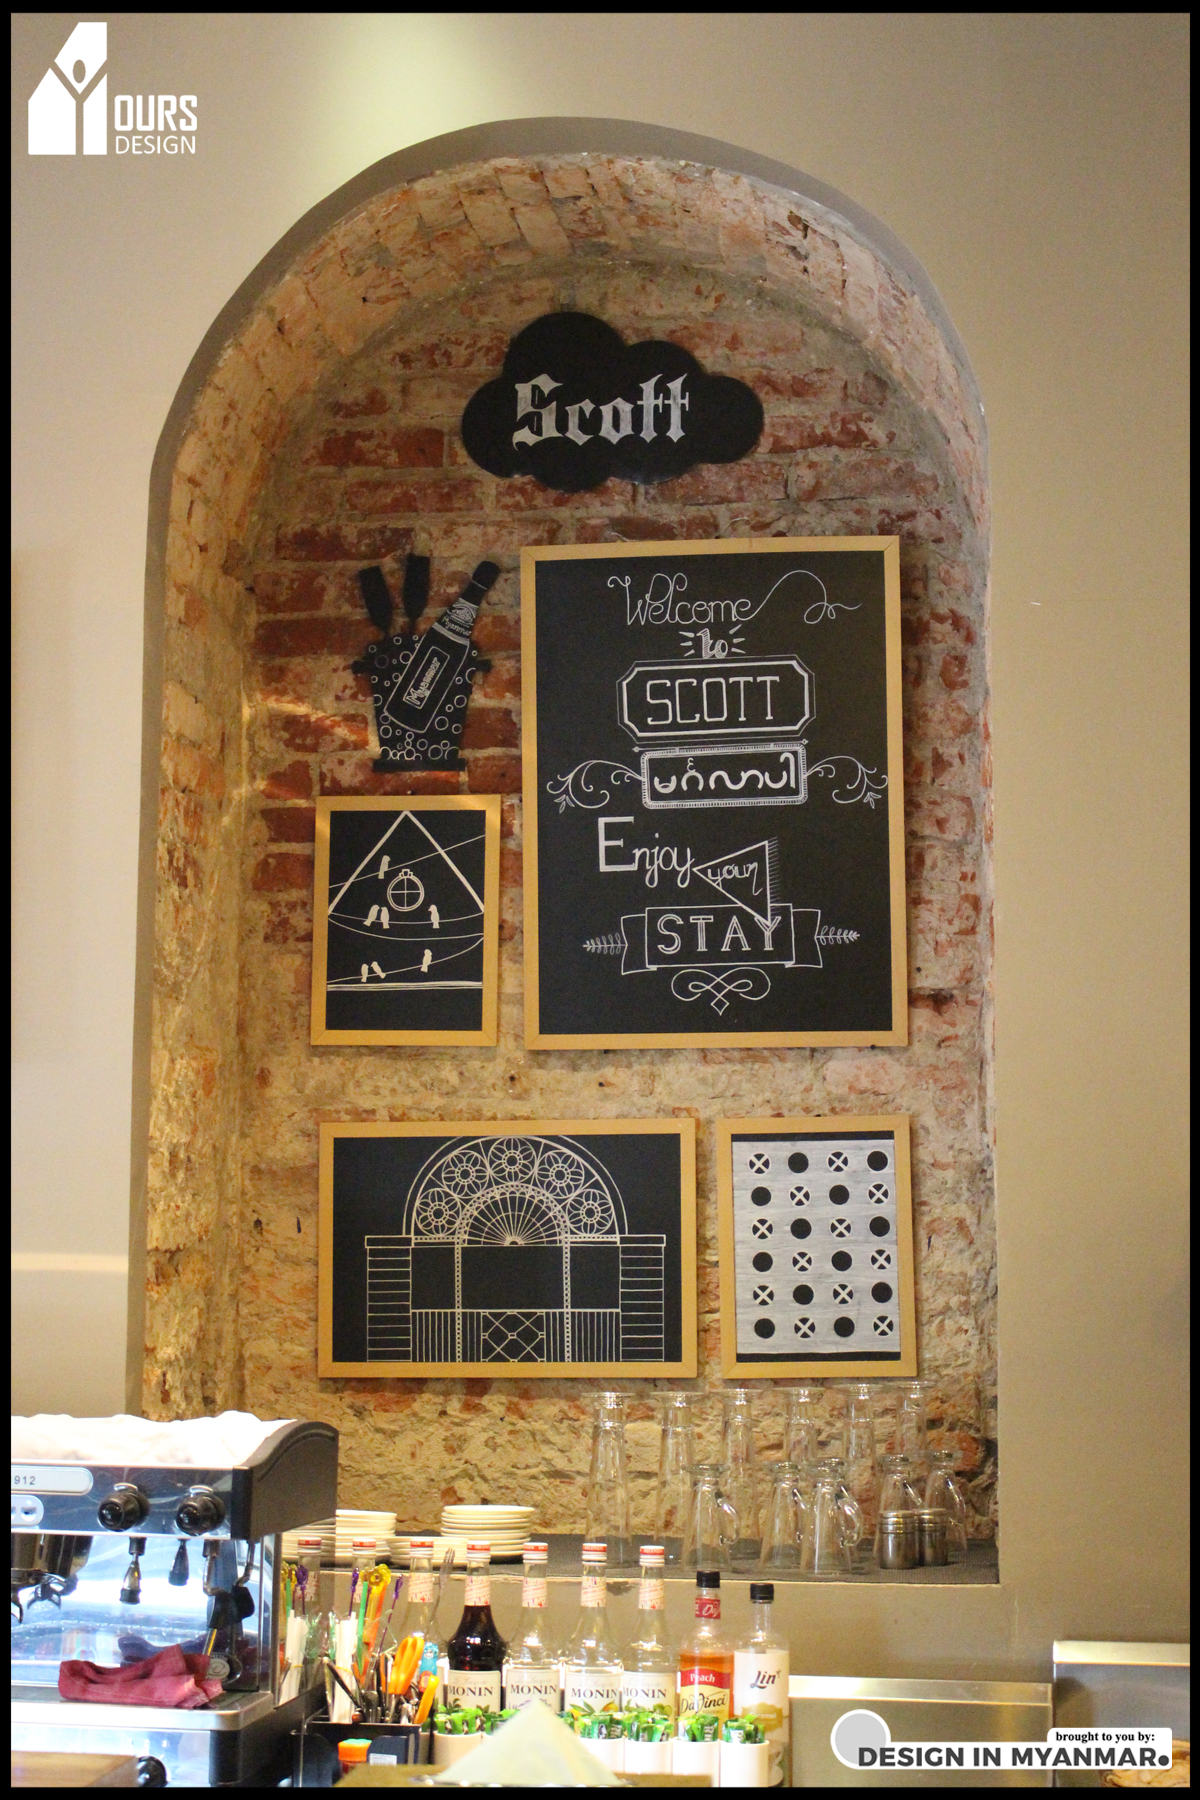 YOURS
DESIGN
Scott
Welcome
to
SCOTT
မင်္ဂလာပါ
Enjoy your
STAY
Myanmar
Myanmar
912
MONIN
MONIN
MONIN
MONIN
Peach
DaVinci
Lin
brought to you by:
DESIGN IN MYANMAR.